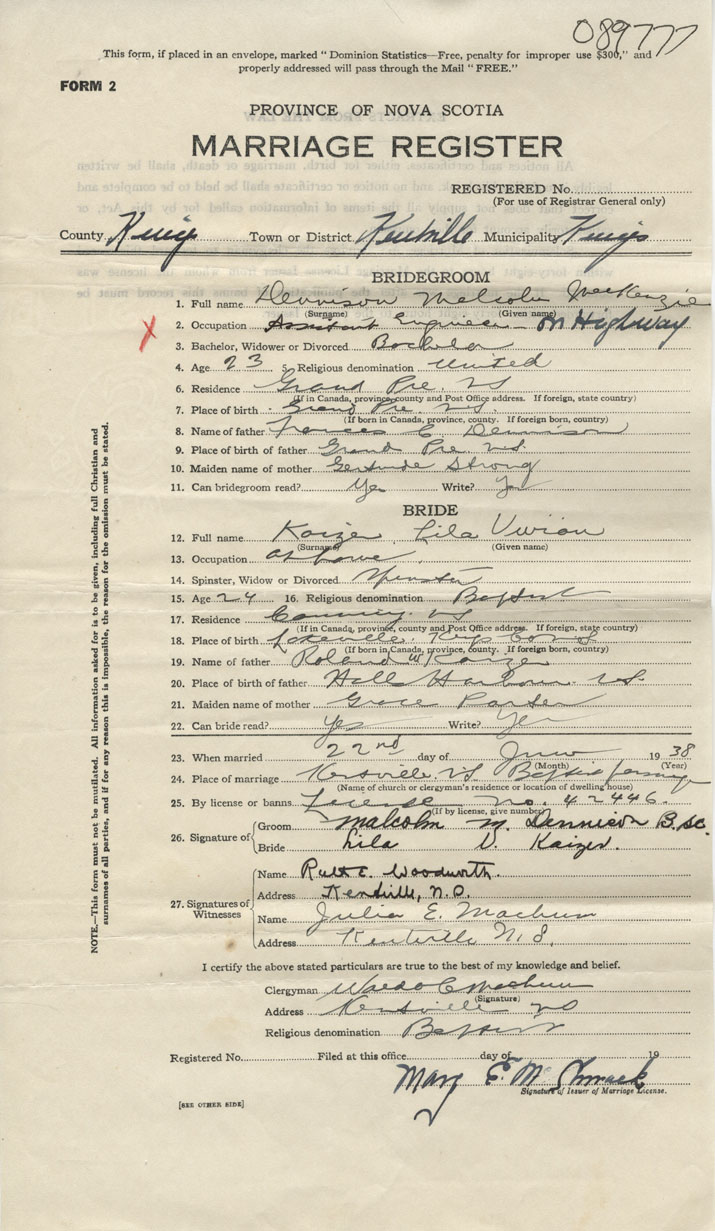 089777
This form, if placed in an envelope, marked "Dominion Statistics—Free, penalty for improper use $300," and
properly addressed will pass through the Mail "FREE."
FORM 2
PROVINCE OF NOVA SCOTIA
MARRIAGE REGISTER
REGISTERED No.
(For use of Registrar General only)
County Kings Town or District Kentville Municipality Kings
BRIDEGROOM
1. Full name Dennison Malcolm MacKenzie
(Surname) (Given name)
2. Occupation Assistant Engineer - on Highway
3. Bachelor, Widower or Divorced Bachelor
4. Age 23 5. Religious denomination United
6. Residence Grand Pre. NS
(If in Canada, province, county and Post Office address. If foreign, state country)
7. Place of birth Grand Pre. N.S.
(If born in Canada, province, county. If foreign born, country)
8. Name of father Frances C Dennison
9. Place of birth of father Grand Pre N.S.
10. Maiden name of mother Gertrude Strong
11. Can bridegroom read? Yes Write? Yes
BRIDE
12. Full name Kaizer Lila Vivian
(Surname) (Given name)
13. Occupation at home
14. Spinster, Widow or Divorced Spinster
15. Age 24 16. Religious denomination Baptist
17. Residence NS
(If in Canada, province, county and Post Office address. If foreign, state country)
18. Place of birth Lakeville
(If born in Canada, province, county. If foreign born, country)
19. Name of father Roland W Kaizer
20. Place of birth of father Halls Harbour N.S.
21. Maiden name of mother Grace Porter
22. Can bride read? Yes Write? Yes
23. When married 22nd day of June 1938
(Month) (Year)
24. Place of marriage Kentville NS Baptist parsonage
(Name of church or clergyman's residence or location of dwelling house)
25. By license or banns License no. 42446.
(If by license, give number)
26. Signature of
Groom Malcolm M. Dennison B.Sc.
Bride Lila V. Kaizer.
27. Signatures of Witnesses
Name Ruth E. Woodworth.
Address Kentville, N.S.
Name Julia E. Machum
Address Kentville N.S.
I certify the above stated particulars are true to the best of my knowledge and belief.
Clergyman Waldo C Machum
(Signature)
Address Kentville NS
Religious denomination Baptist
Registered No. Filed at this office day of 19
Mary E. M
Signature of Issuer of Marriage License.
[SEE OTHER SIDE]
NOTE.—This form must not be mutilated. All information asked for is to be given, including full Christian and
surnames of all parties, and if for any reason this is impossible, the reason for the omission must be stated.